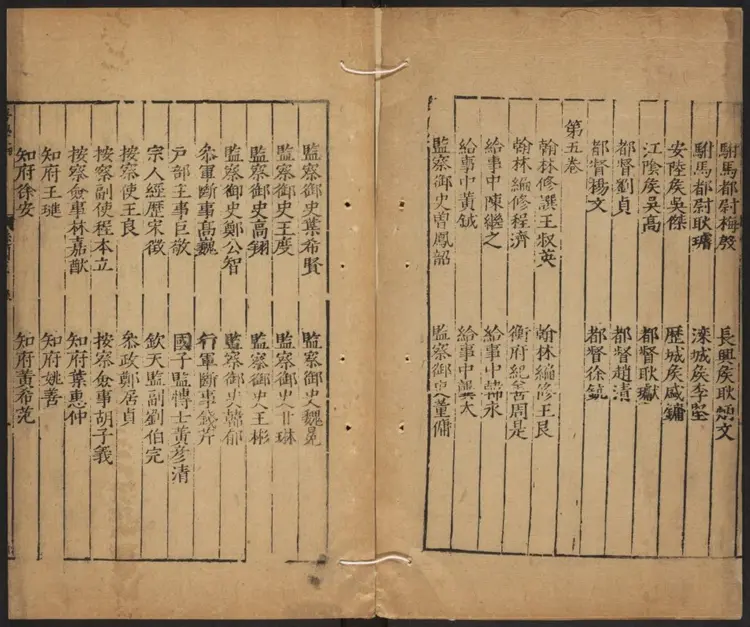 駙馬都尉梅殷　長興矦耿炳文
駙馬都尉耿璿　灤城矦李堅
安陸矦吳傑　歷城矦盛鏞
江陰矦吳高　都督耿瓛
都督劉貞　都督趙清
都督楊文　都督徐凱
第五卷
翰林修譔王叔英　翰林編修王艮
翰林編修程濟　衡府紀善周是
給事中陳繼之　給事中韓永
給事中黃鉞　給事中龔大
監察御史曾鳳韶　監察御史董傭
監察御史葉希賢　監察御史魏冕
監察御史王度　監察御史甘琳
監察御史高翔　監察御史王彬
監察御史鄭公智　監察御史韓郁
叅軍斷事高巍　行軍斷事錢芹
戸部主事巨敬　國子監博士黃彦清
宗人經歷宋徵　欽天監副劉伯完
按察使王良　叅政鄭居貞
按察副使程本立　按察僉事胡子義
按察僉事林嘉猷　知府葉惠仲
知府王璡　知府姚善
知府徐安　知府黃希范